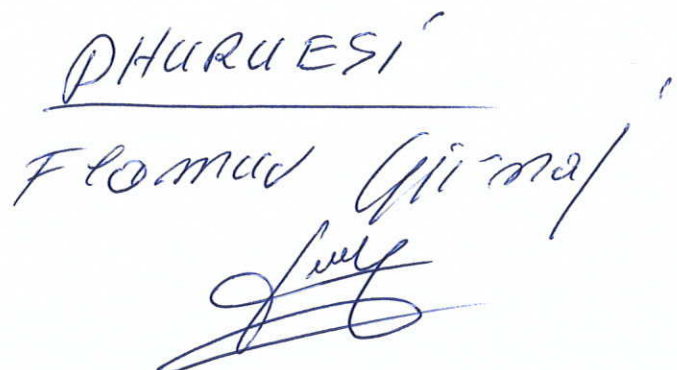 DHURUESI
Flamur Gjinaj